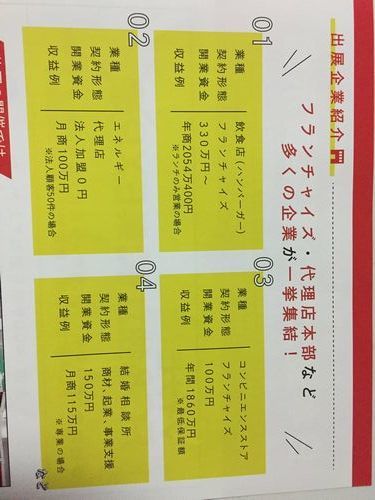 出展企業紹介
フランチャイズ・代理店本部など
多くの企業が一挙集結！
01
業種 飲食店(ハンバーガー)
契約形態 フランチャイズ
開業資金 330万円〜
収益例 年商2054万400円
※ランチのみ営業の場合
02
業種 エネルギー
契約形態 代理店
開業資金 法人加盟0円
収益例 月商100万円
※法人顧客50件の場合
03
業種 コンビニエンスストア
契約形態 フランチャイズ
開業資金 100万円
収益例 年間1860万円
※最低保証額
04
業種 結婚相談所
契約形態 商材、起業、事業支援
開業資金 150万円
収益例 月商115万円
※専業の場合
など